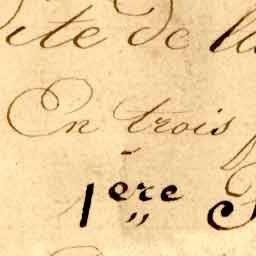 ite de la
En trois
1ère